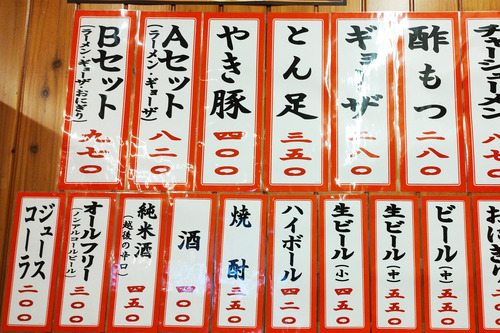 チャーシューメン
八七〇
酢もつ
二八〇
ギョーザ
二八〇
とん足
三五〇
やき豚
四〇〇
Aセット
(ラーメン・ギョーザ)
八二〇
Bセット
(ラーメン・ギョーザ・おにぎり)
九七〇
おにぎり
ビール
(中)
五五〇
生ビール
(中)
五五〇
生ビール
(小)
三五〇
ハイボール
四二〇
焼酎
三五〇
酒
純米酒
(越後の辛口)
四五〇
オールフリー
(ノンアルコールビール)
三〇〇
ジュース
コーラ
二〇〇